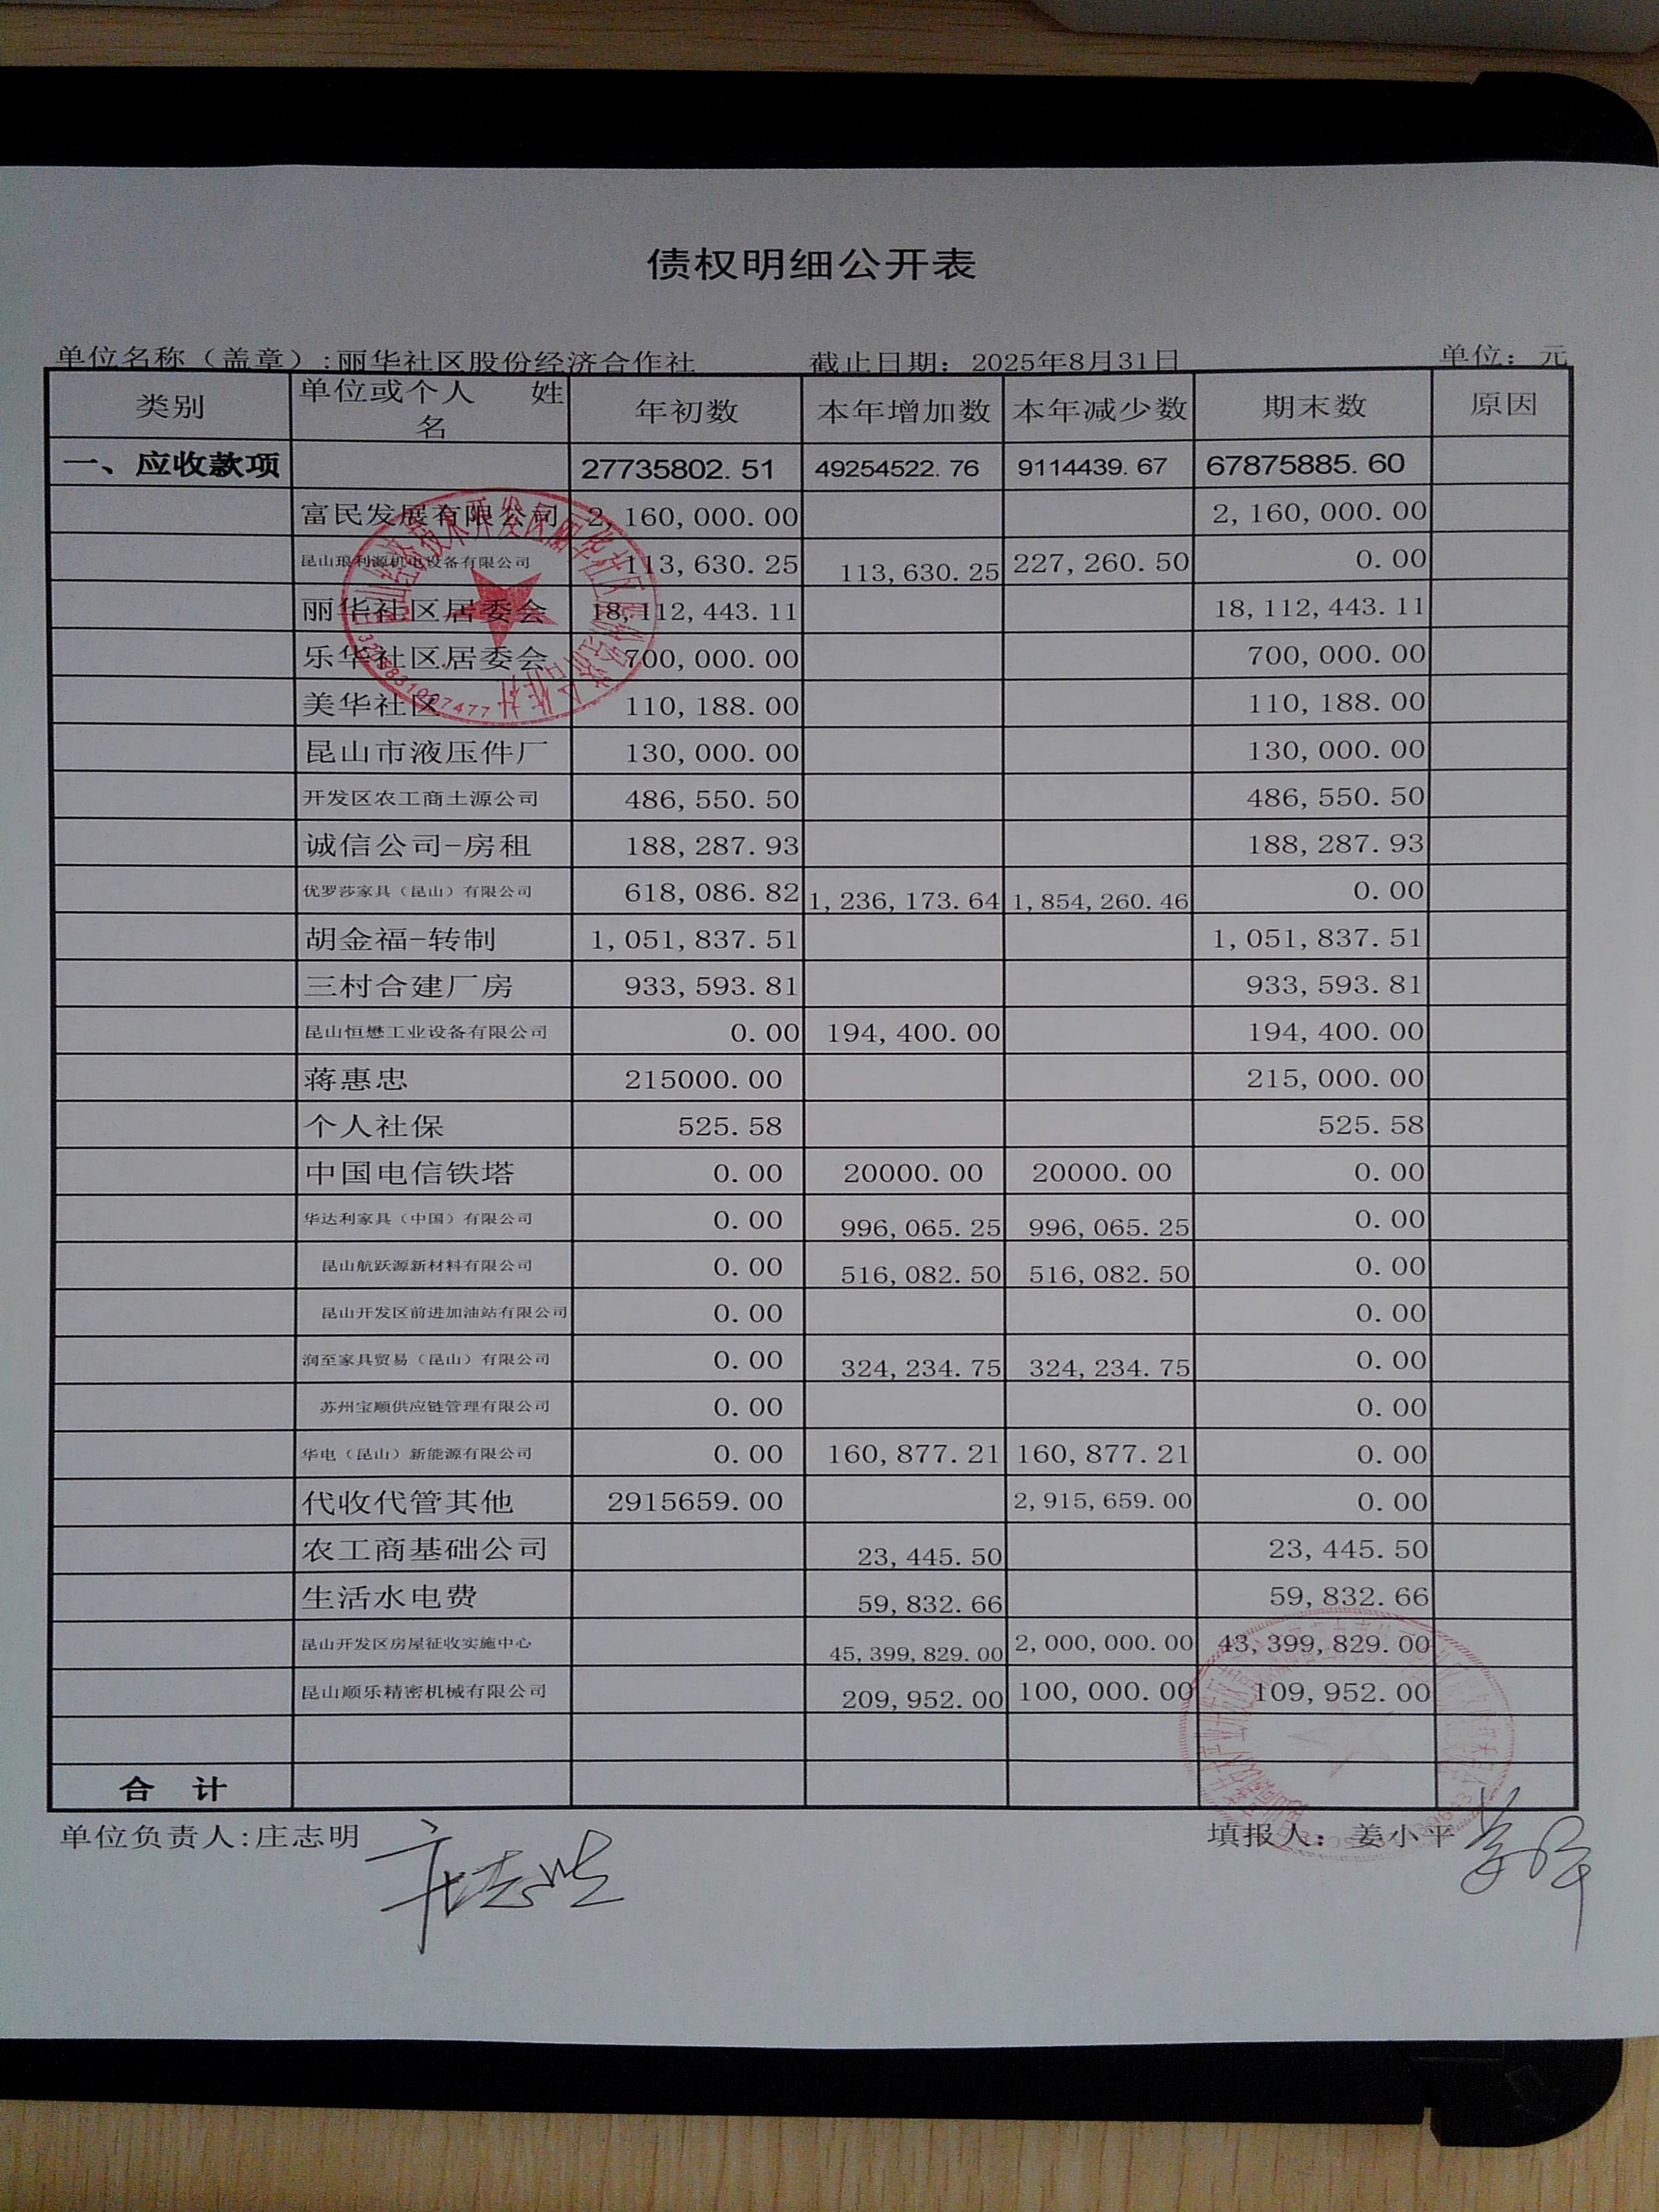 债权明细公开表
单位名称（盖章）:丽华社区股份经济合作社 截止日期：2025年8月31日 单位：元
类别 单位或个人 姓名 年初数 本年增加数 本年减少数 期末数 原因
一、应收款项 27735802.51 49254522.76 9114439.67 67875885.60
富民发展有限公司 2,160,000.00 2,160,000.00
昆山琅利源机电设备有限公司 113,630.25 113,630.25 227,260.50 0.00
丽华社区居委会 18,112,443.11 18,112,443.11
乐华社区居委会 700,000.00 700,000.00
美华社区 110,188.00 110,188.00
昆山市液压件厂 130,000.00 130,000.00
开发区农工商土源公司 486,550.50 486,550.50
诚信公司-房租 188,287.93 188,287.93
优罗莎家具（昆山）有限公司 618,086.82 1,236,173.64 1,854,260.46 0.00
胡金福-转制 1,051,837.51 1,051,837.51
三村合建厂房 933,593.81 933,593.81
昆山恒懋工业设备有限公司 0.00 194,400.00 194,400.00
蒋惠忠 215000.00 215,000.00
个人社保 525.58 525.58
中国电信铁塔 0.00 20000.00 20000.00 0.00
华达利家具（中国）有限公司 0.00 996,065.25 996,065.25 0.00
昆山航跃源新材料有限公司 0.00 516,082.50 516,082.50 0.00
昆山开发区前进加油站有限公司 0.00 0.00
润至家具贸易（昆山）有限公司 0.00 324,234.75 324,234.75 0.00
苏州宝顺供应链管理有限公司 0.00 0.00
华电（昆山）新能源有限公司 0.00 160,877.21 160,877.21 0.00
代收代管其他 2915659.00 2,915,659.00 0.00
农工商基础公司 23,445.50 23,445.50
生活水电费 59,832.66 59,832.66
昆山开发区房屋征收实施中心 45,399,829.00 2,000,000.00 43,399,829.00
昆山顺乐精密机械有限公司 209,952.00 100,000.00 109,952.00
合 计
单位负责人:庄志明 庄志明 填报人： 姜小平